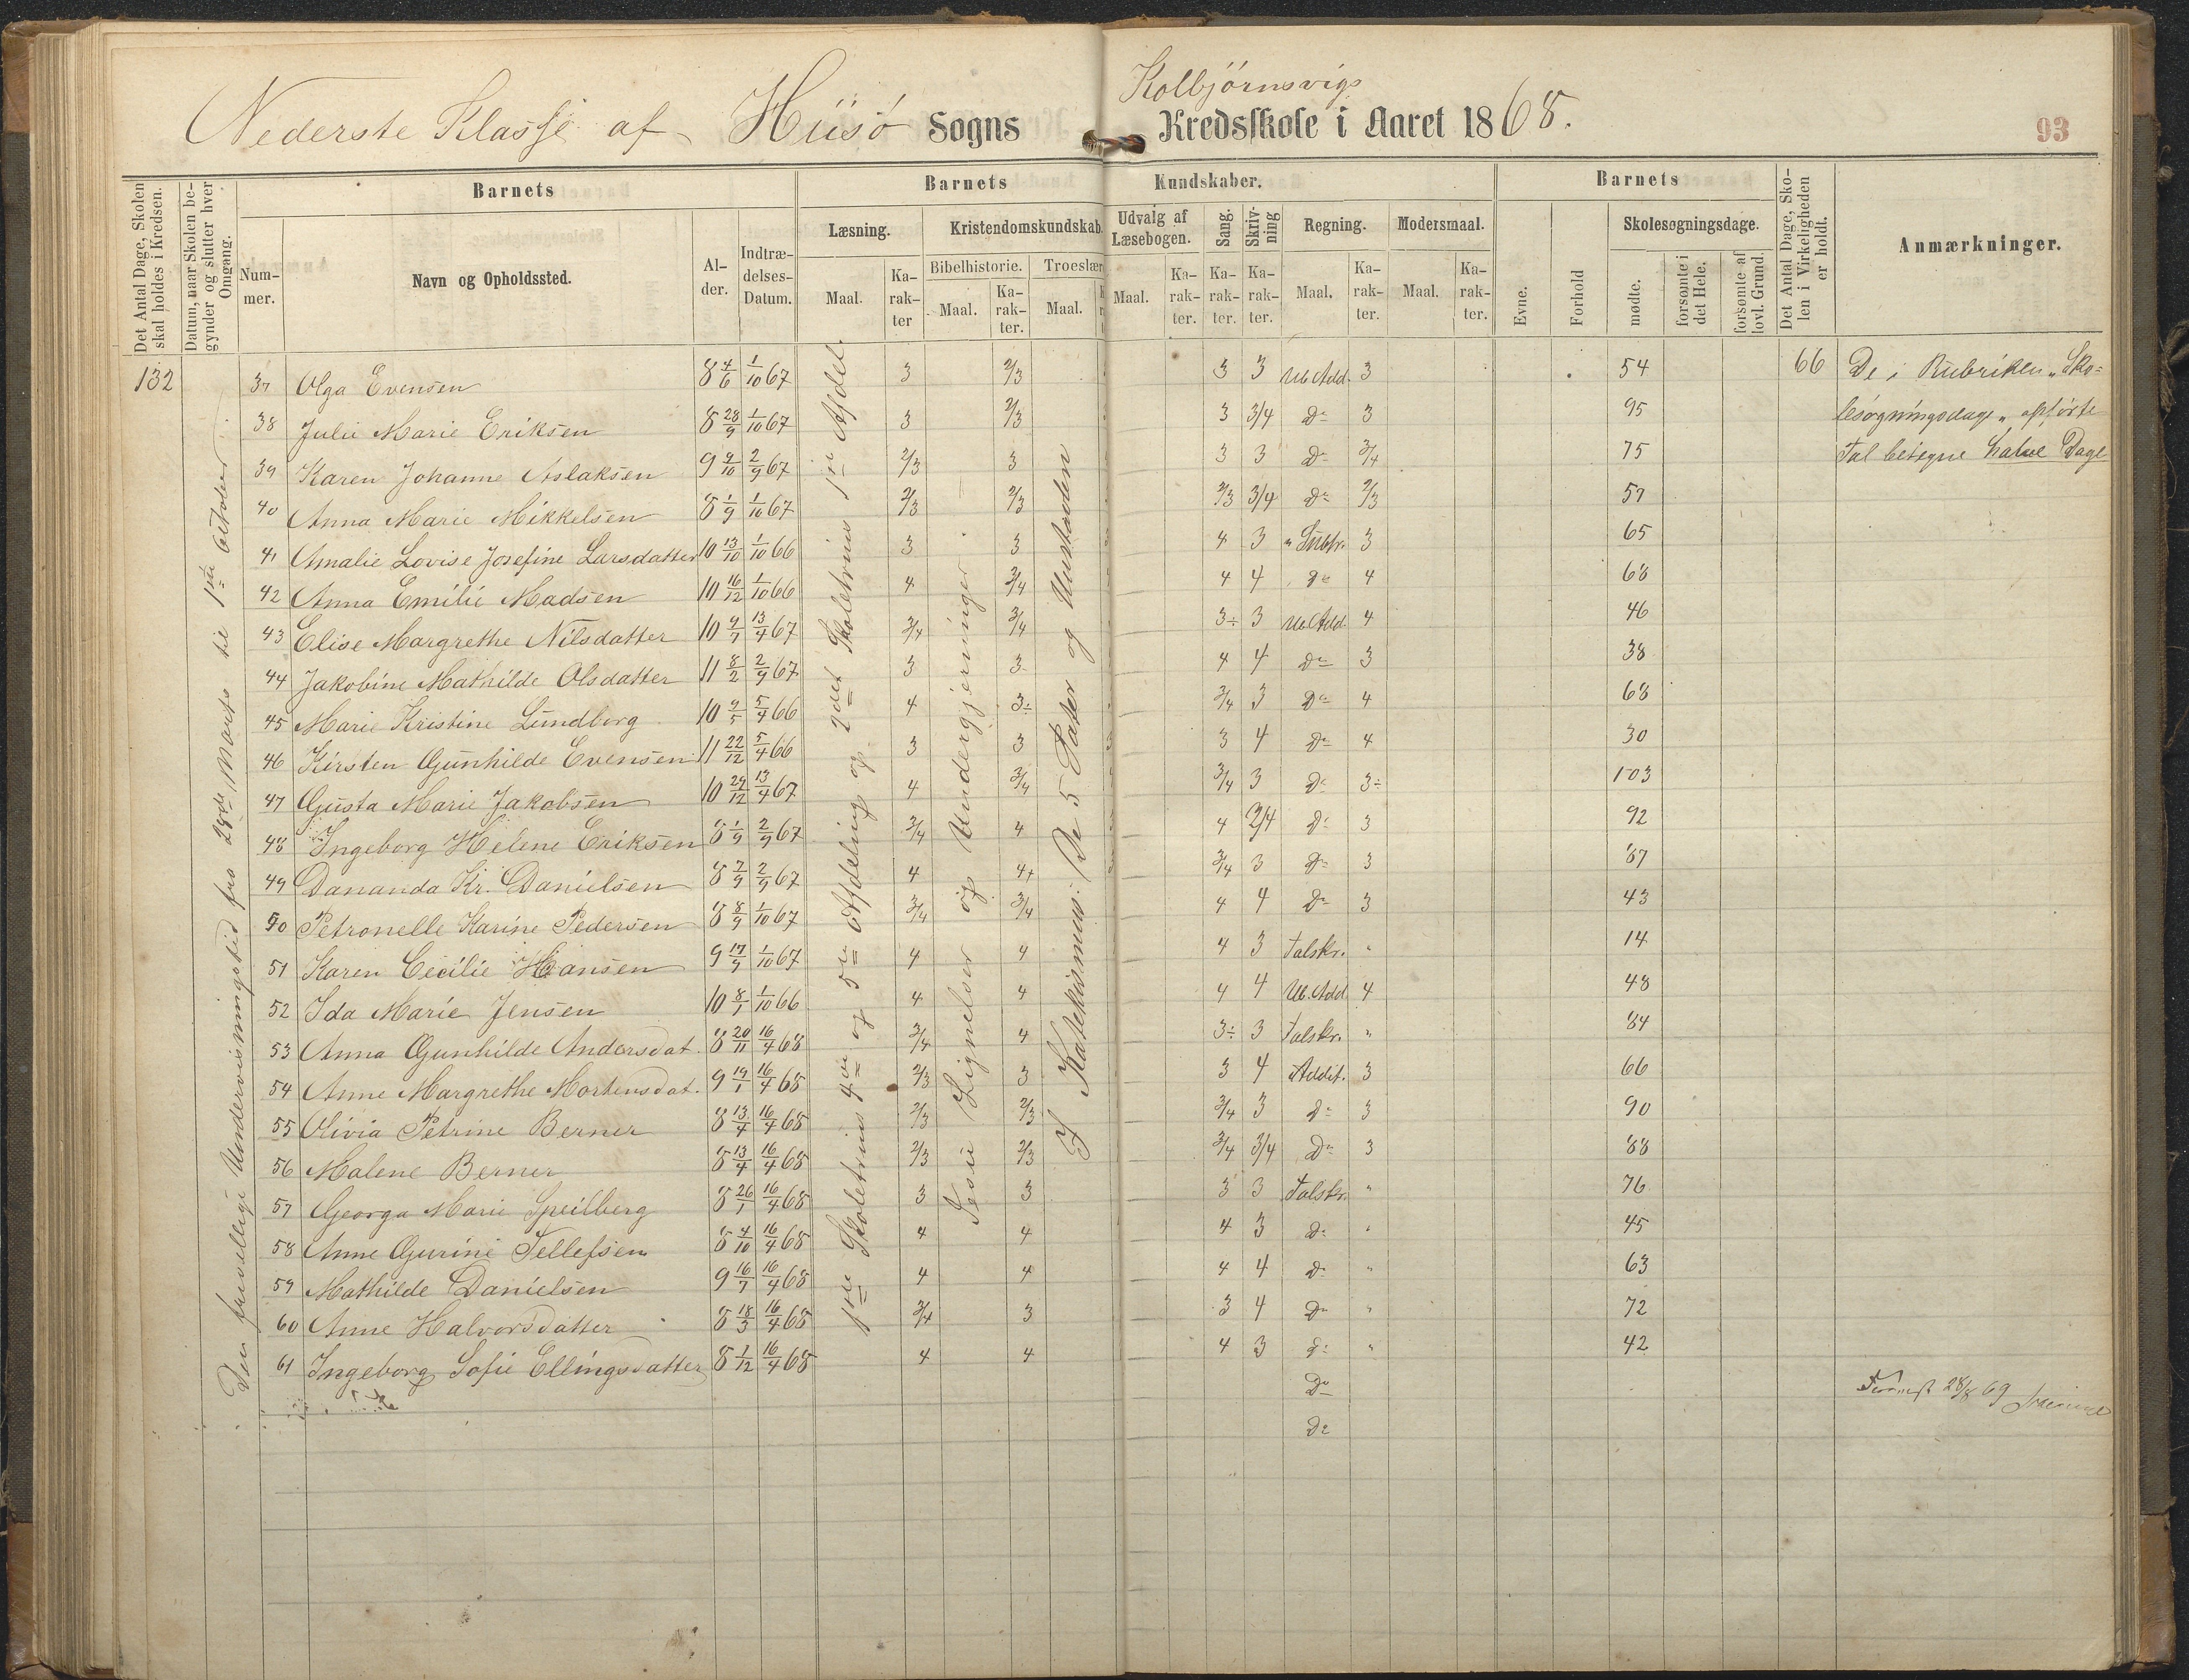 Kolbjörnsvigs
Nederste Klasse af Hiisø Sogns Kredsskole i Aaret 1868.
93
Det Antal Dage, Skolen skal holdes i Kredsen.
Datum, naar Skolen begynder og slutter hver Omgang.
Barnets
Barnets Kundskaber.
Barnets
Det Antal Dage, Skolen i Virkeligheden er holdt.
Anmærkninger.
Nummer.
Navn og Opholdssted.
Alder.
Indtrædelses-Datum.
Læsning.
Kristendomskundskab.
Udvalg af Læsebogen.
Sang.
Skrivning
Regning.
Modersmaal.
Evne.
Forhold
Skolesøgningsdage.
Bibelhistorie.
Troeslær
Maal.
Karakter
Maal.
Karakter.
Maal.
Maal.
Karakter.
Karakter.
Karakter.
Maal.
Karakter.
Maal.
Karakter.
mødte.
forsømte i det Hele.
forsømte af lovl. Grund.
132 37 Olga Evensen 8 4/6 1/10 67 3 2/3 3 3 Ub. Add. 3 54 66 De i Rubriken "Sko=
38 Julie Marie Eriksen 8 28/9 1/10 67 3 2/3 3 3/4 Do 3 95 lesøgningsdage" opførte
39 Karen Johanne Aslaksen 9 9/10 2/9 67 2/3 3 3 3 Do 3/4 75 Tal betegne halve Dage
40 Anna Marie Mikkelsen 8 1/9 1/10 67 2/3 2/3 2/3 3/4 Do 2/3 57
41 Amalie Lovise Josefine Larsdatter 10 13/10 1/10 66 3 3 4 3 " Subtr. 3 65
42 Anna Emilie Madsen 10 16/12 1/10 66 4 3/4 4 4 Do 4 68
43 Elise Margrethe Nilsdatter 10 9/7 13/4 67 3/4 3/4 3÷ 3 Ub. Add. 4 46
44 Jakobine Mathilde Olsdatter 11 8/2 2/9 67 3 3 4 4 Do 3 38
45 Marie Kristine Lundborg 10 9/5 5/4 66 4 3÷ 3/4 3 Do 4 68
46 Kirsten Gunhilde Evensen 11 22/12 5/4 66 3 3 3 4 Do 4 30
47 Gusta Marie Jakobsen 10 29/12 13/4 67 4 3/4 3/4 3 Do 3÷ 103
48 Ingeborg Helene Eriksen 8 1/9 2/9 67 3/4 4 4 3/4 Do 3 92
49 Dananda Kr. Danielsen 8 7/9 2/9 67 4 4+ 3/4 3 Do 3 87
50 Petronelle Karine Pedersen 8 8/9 1/10 67 3/4 3/4 4 4 Do 3 43
51 Karen Cecilie Hansen 9 17/9 1/10 67 4 4 4 3 Talskr. " 14
52 Ida Marie Jensen 10 8/1 1/10 66 4 4 4 4 Ub. Add 4 48
53 Anna Gunhilde Andersdat. 8 20/11 16/4 68 3/4 4 3÷ 3 Talskr. " 84
54 Anne Margrethe Mortensdat. 9 19/1 16/4 68 2/3 3 3 4 Addit. 3 66
55 Olivia Petrine Berner 8 13/4 16/4 68 2/3 2/3 3/4 3 Do 3 90
56 Malene Berner 8 13/4 16/4 68 2/3 2/3 3/4 3/4 Do 3 88
57 Georga Marie Speilberg 8 26/1 16/4 68 3 3 3 3 Talskr. " 76
58 Anne Gurine Tellefsen 8 4/10 16/4 68 4 4 4 3 Do " 45
59 Mathilde Danielsen 9 16/7 16/4 68 4 4 4 4 Do " 63
60 Anne Halvorsdatter 8 18/3 16/4 68 3/4 3 3 4 Do " 72
61 Ingeborg Sofie Ellingsdatter 8 1/12 16/4 68 4 4 4 3 Do " 42
Do
28/8 69
Do
Den frivillige Undervisningstid fra 28de Marts til 1ste October
1ste Skoletrins 4de og 5te Afdeling og 2det Skoletrins 1ste Afdel.
Jesu Lignelser og Undergjerninger
I Katekismus: De 5 Parter og Hustavlen